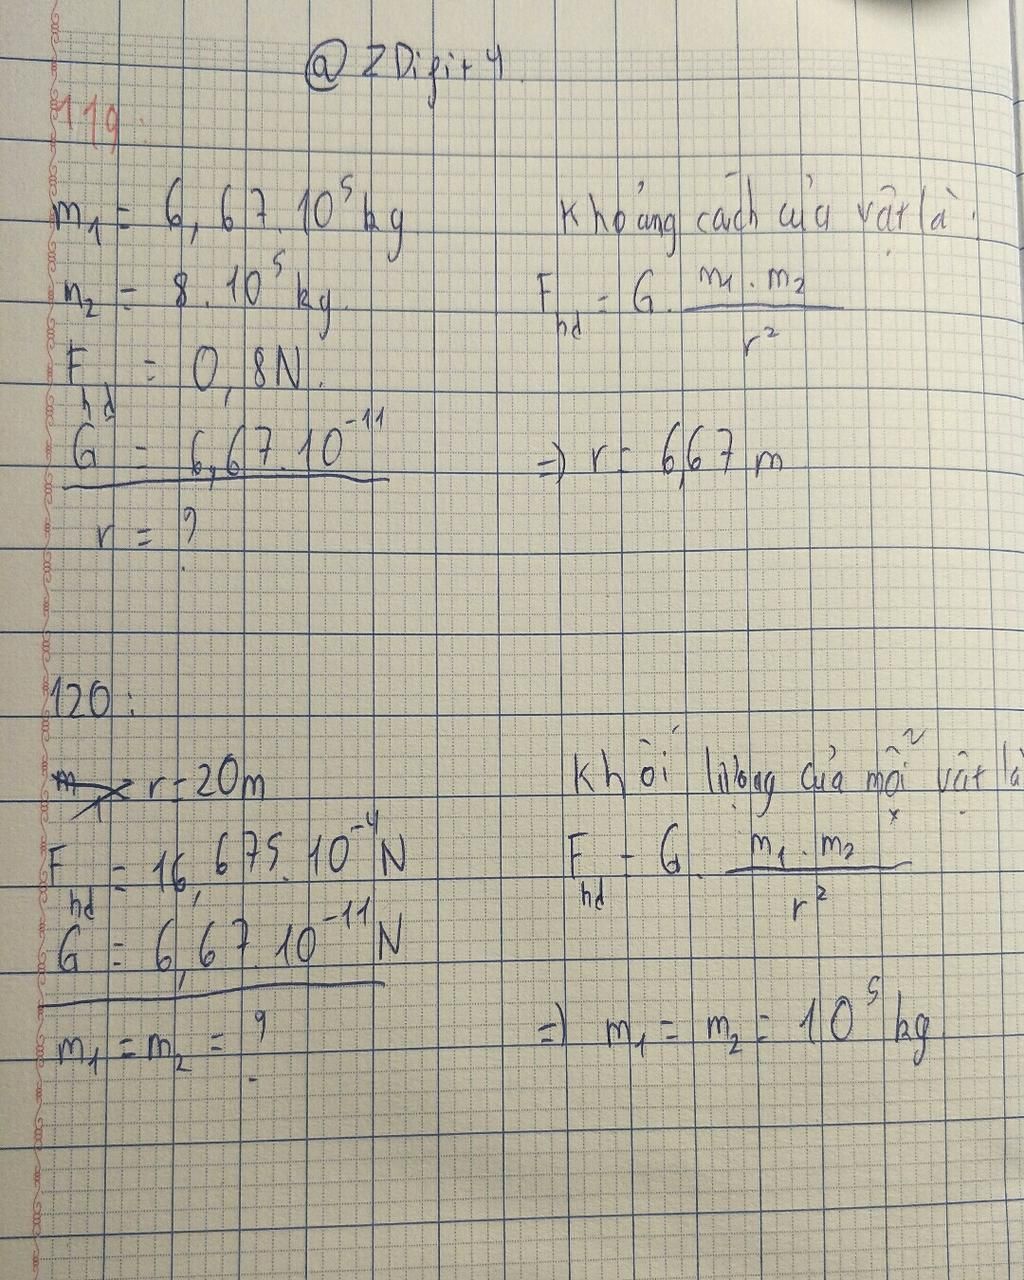 @ZDigit4
119:
m₁ = 6,67.10⁵ kg
m₂ = 8.10⁵ kg.
F_hd = 0,8N.
G = 6,67.10⁻¹¹
r = ?
Khoảng cách của vật là:
F_hd = G. m₁.m₂ / r²
=> r = 6,67 m
120:
r = 20m
F_hd = 16,675.10⁻⁴ N
G = 6,67.10⁻¹¹ N
m₁ = m₂ = ?
Khối lượng của mỗi vật là
F_hd = G. m₁.m₂ / r²
=> m₁ = m₂ = 10⁵ kg